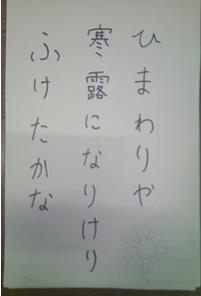 ひまわりや
寒露になりけり
ふけたかな